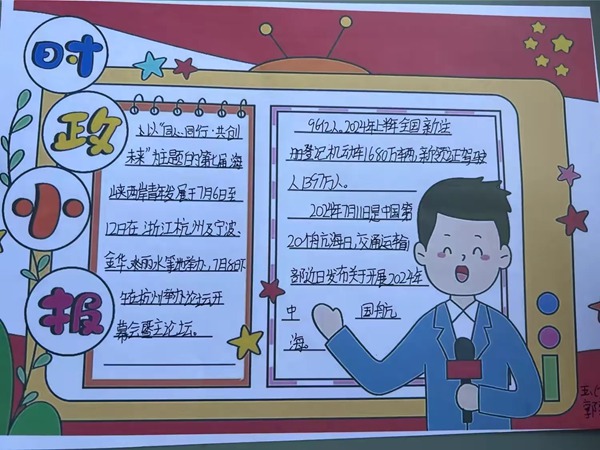 时
政
小
报
以"同心同行·共创
未来"为主题的第七届海
峡两岸青年发展于7月6日至
12日在浙江杭州及宁波、
金华、丽水等地举办,7月8日下
午在杭州举办论坛开
幕会暨主论坛。
9612人。2024年上半年全国新注
册登记机动车1680万辆,新领证驾驶
人1397万人。
2024年7月11日是中国第
20个航海日,交通运输
部近日发布关于开展2024年
中 国航
海。